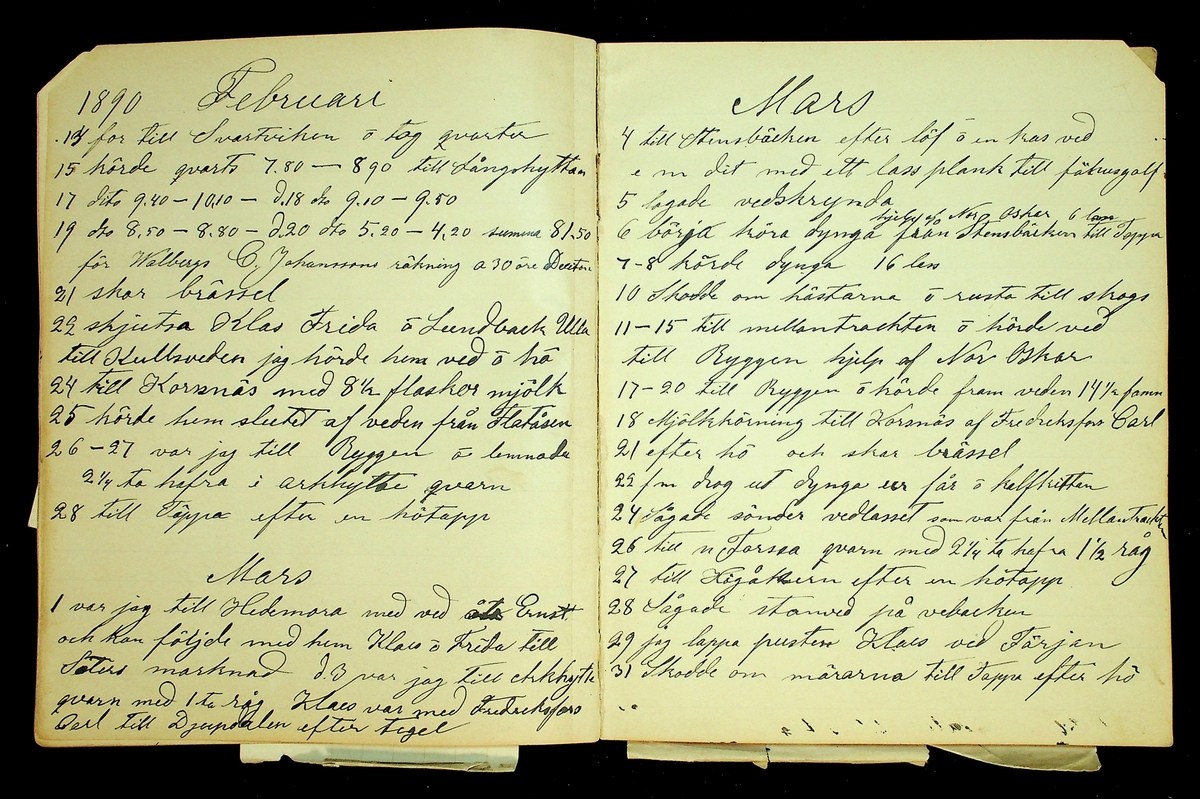 1890 Februari
14 for till Svartviken o tog qvarter
15 körde qvarts 7.80 — 8 90 till Långshyttan
17 dito 9.40 — 10.10 — d.18 dto 9.10 — 9.50
19 dto 8.50 — 8.80 — d.20 dto 5.20 — 4,20 summa 81.50
för Walbergs C. Johanssons räkning a 30 öre
21 skar brässel
22 skjutsa Klas Frida ō Lundback Ulla
till Kullsveden jag körde hem ved ō hö
24 till Korsnäs med 8½ flaskor mjölk
25 körde hem slutet af veden från Flatåsen
26 — 27 var jag till Ryggen ō lemnade
2¼ ta hafra i arkhytte qvarn
28 till Täppa efter en hötapp
Mars
1 var jag till Hedemora med ved Ernst
och han följde med hem Klaes ō Frida till
Säters marknad d.3 var jag till Arkhytte
qvarn med 1 ta råg Klaes var med Fredriksfors
Carl till Djupdalen efter tegel
Mars
4 till Stensbäcken efter löf ō en kas ved
e m dit med ett lass plank till fähusgolf
5 lagade vedskrynda
hjelp af Nor Oskar 6 lass
6 börja köra dynga från Stensbäcken till Täppa
7-8 körde dynga 16 lass
10 Skodde om hästarna ō rusta till skogs
11—15 till mellantrachten ō körde ved
till Ryggen hjelp af Nor Oskar
17—20 till Ryggen ō körde fram veden 14½ famn
18 Mjölkkörning till Korsnäs af Fredriksfors Carl
21 efter hö och skar brässel
22 fm drog ut dynga ur får ō kalfkittan
24 Sågade sönder vedlasset som var från Mellantrachten
26 till n Forssa qvarn med 2¼ ta hafra 1½ råg
27 till Högåkern efter en hötapp
28 Sågade stamved på vebacken
29 jag lappa pusten Klaes vid Färjan
31 Skodde om märarna till Täppa efter hö